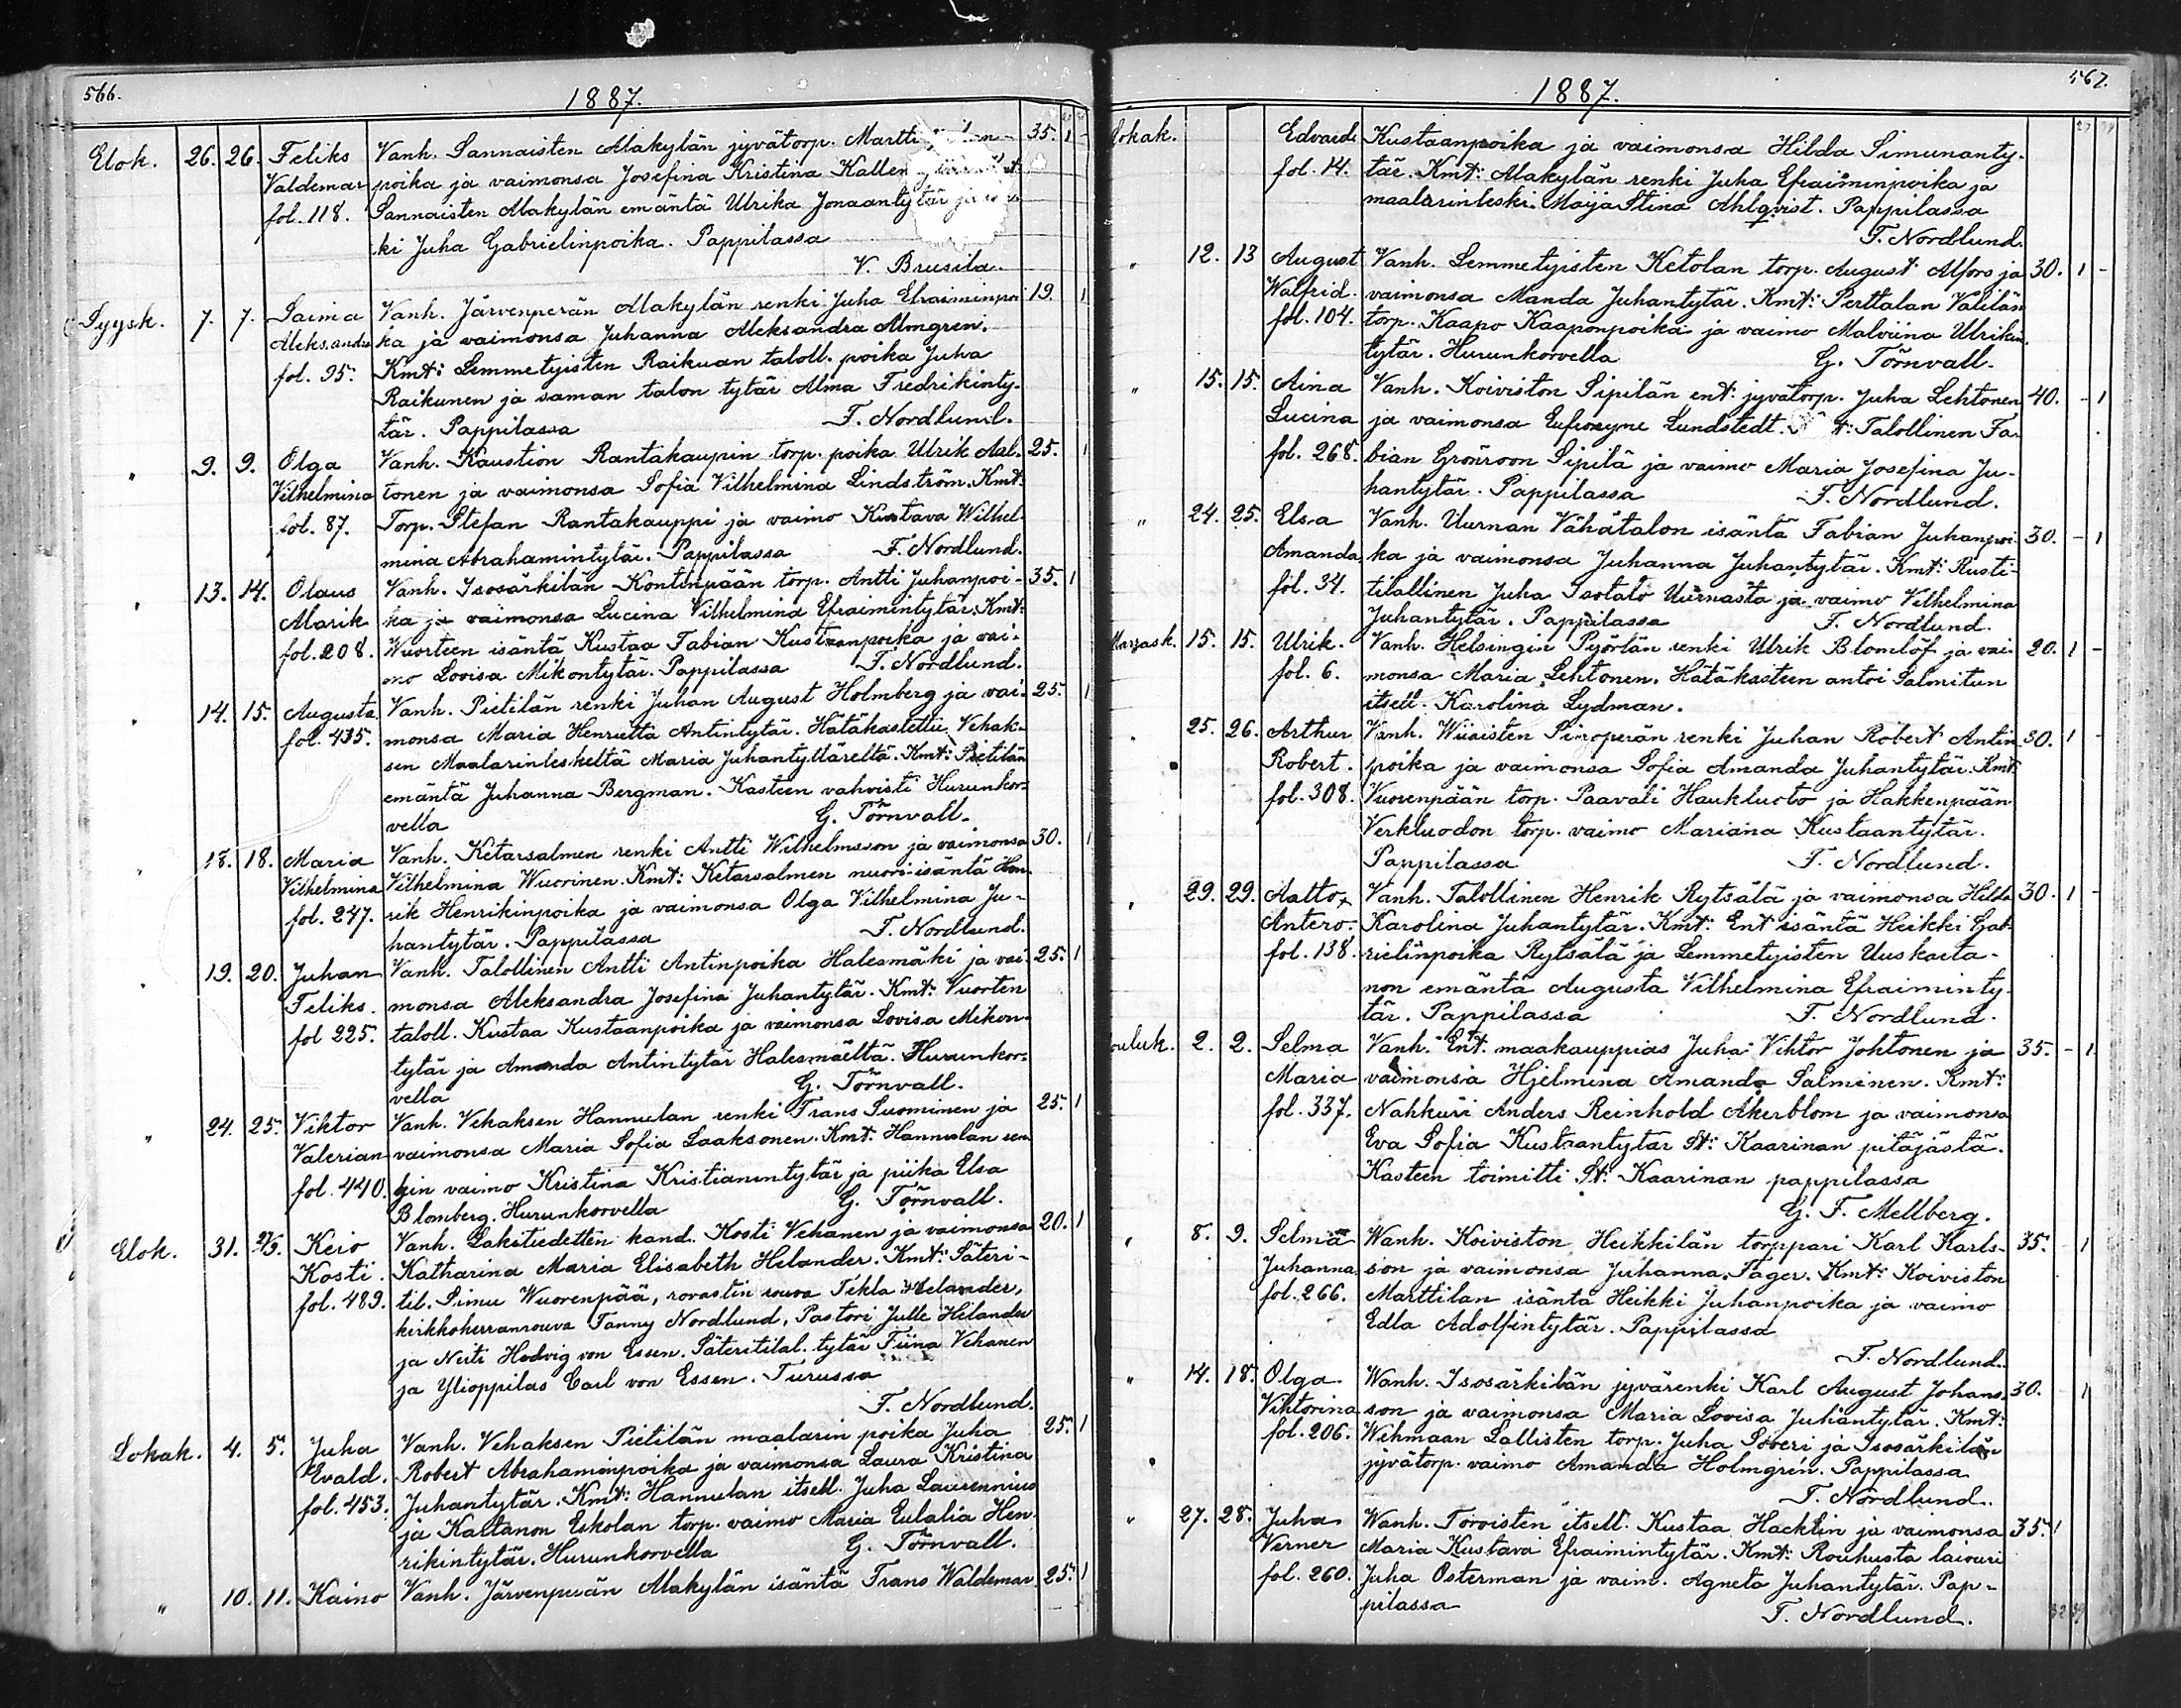 566.
1887.
Elok. 26. 26. Feliks Vanh. Sannaisten Alakylän jyvätorp. Martti 35. 1 -
Valdemar poika ja vaimonsa Josefina Kristina Kallen
fol. 118. Sannaisten Alakylän emäntä Ulrika Jonaantytär ja
ki Juha Gabrielinpoika. Pappilassa
V. Brusila.
Syysk. 7. 7. Saima Vanh. Järvenperän Alakylän renki Juha Efraiminpoi- 19. 1
Aleksandra ka ja vaimonsa Juhanna Aleksandra Almgren.
fol. 95. Kmt: Lemmetyisten Raikuan taloll. poika Juha
Raikunen ja saman talon tytär Alma Fredrikinty-
tär. Pappilassa F. Nordlund.
" 9. 9. Olga Vanh. Kaustion Rantakaupin torp. poika Ulrik Aal- 25. 1
Vilhelmina tonen ja vaimonsa Sofia Vilhelmina Lindström. Kmt:
fol. 87. Torp. Stefan Rantakauppi ja vaimo Kustava Wilhel-
mina Abrahamintytär. Pappilassa F. Nordlund.
" 13. 14. Olaus Vanh. Isosärkilän Kontinpään torp. Antti Juhanpoi- 35. 1
Alarik ka ja vaimonsa Lucina Vilhelmina Efraimintytär. Kmt:
fol. 208. Wuorteen isäntä Kustaa Fabian Kustaanpoika ja vai-
mo Lovisa Mikontytär. Pappilassa F. Nordlund.
" 14. 15. Augusta Vanh. Pietilän renki Juhan August Holmberg ja vai- 25. 1
fol. 435. monsa Maria Henrietta Antintytär. Hätäkastettu Vehak-
sen Maalarinleskeltä Maria Juhantyttäreltä. Kmt: Pietilän
emäntä Juhanna Bergman. Kasteen vahvisti Hurunkor-
vella G. Törnvall.
" 18. 18. Maria Vanh. Ketarsalmen renki Antti Wilhelmsson ja vaimonsa 30. 1
Vilhelmina Vilhelmina Wuorinen. Kmt: Ketarsalmen nuori-isäntä Hen-
fol. 247. rik Henrikinpoika ja vaimonsa Olga Vilhelmina Ju-
hantytär. Pappilassa F. Nordlund.
" 19. 20. Juhan Vanh. Talollinen Antti Antinpoika Halesmäki ja vai- 25. 1
Feliks. monsa Aleksandra Josefina Juhantytär. Kmt: Vuorten
fol 225. taloll. Kustaa Kustaanpoika ja vaimonsa Lovisa Mikon-
tytär ja Amanda Antintytär Halesmäeltä. Hurunkor-
vella G. Törnvall.
" 24. 25. Viktor Vanh. Vehaksen Hannulan renki Frans Suominen ja 25. 1
Valerian vaimonsa Maria Sofia Laaksonen. Kmt. Hannulan ren-
fol. 440. gin vaimo Kristina Kristianintytär ja piika Elsa
Blomberg. Hurunkorvella G. Törnvall.
Elok. 31. Keio Vanh. Lakitiedetten kand. Kosti Vehanen ja vaimonsa 20. 1
Kosti. Katharina Maria Elisabeth Helander. Kmt: Säteri-
fol. 489. til. Simu Wuorenpää, rovastin rouva Tekla Helander,
kirkkoherranrouva Fanny Nordlund, Pastori Julle Helander
ja Neiti Hedvig von Essen. Säteritilal. tytär Fiina Vehanen
ja Ylioppilas Carl von Essen. Turussa
F. Nordlund.
Lokak. 4. 5. Juha Vanh. Vehaksen Pietilän maalarin poika Juha 25. 1
Evald. Robert Abrahaminpoika ja vaimonsa Laura Kristina
fol. 453. Juhantytär. Kmt: Hannulan itsell. Juha Laurennius
ja Kaitanon Eskolan torp. vaimo Maria Eulalia Hen-
rikintytär. Hurunkorvella G. Törnvall.
" 10. 11. Kaino Vanh. Järvenperän Alakylän isäntä Frans Waldemar 25. 1
567.
1887.
Lokak. Edvard Kustaanpoika ja vaimonsa Hilda Simunanty-
fol. 14. tär. Kmt: Alakylän renki Juha Efraiminpoika ja
maalarinleski Maija Stina Ahlqvist. Pappilassa
F. Nordlund.
" 12. 13 August Vanh. Lemmetyisten Ketolan torp. August Alfors ja 30. 1 -
Walfrid. vaimonsa Manda Juhantytär. Kmt: Perttalan Välilän
fol. 104. torp. Kaapo Kaaponpoika ja vaimo Malviina Ulrikin-
tytär. Hurunkorvella G. Törnvall.
" 15. 15. Aina Vanh. Koiviston Sipilän ent: jyvätorp. Juha Lehtonen 40. - 1
Lucina ja vaimonsa Eufrosyne Lundstedt. Talollinen Fa-
fol. 268. bian Grönroon Sipilä ja vaimo Maria Josefina Ju-
hantytär. Pappilassa F. Nordlund.
" 24. 25. Elsa Vanh. Uurnan Vähätalon isäntä Fabian Juhanpoi- 30. - 1
Amanda ka ja vaimonsa Juhanna Juhantytär. Kmt: Rusti-
fol. 34. tilallinen Juha Isotalo Uurnasta ja vaimo Vilhelmina
Juhantytär. Pappilassa F. Nordlund.
Marrask. 15. 15. Ulrik. Vanh. Helsingin Pyörlän renki Ulrik Blomlöf ja vai- 20. 1 -
fol. 6. monsa Maria Lehtonen. Hätäkasteen antoi Salmitun
itsell. Karolina Lydman.
" 25. 26. Arthur Vanh. Wiiaisten Piiroperän renki Juhan Robert Antin- 30. 1 -
Robert. poika ja vaimonsa Sofia Amanda Juhantytär. Kmt:
fol. 308. Vuorenpään torp. Paavali Haukluoto ja Hakkenpään
Verkluodon torp. vaimo Mariana Kustaantytär.
Pappilassa F. Nordlund.
" 29. 29. Aatto Vanh. Talollinen Henrik Rytsälä ja vaimonsa Hilda 30. 1 -
Antero. Karolina Juhantytär. Kmt: Ent isäntä Heikki Gab-
fol. 138. rielinpoika Rytsälä ja Lemmetyisten Uuskarta-
non emäntä Augusta Vilhelmina Efraiminty-
tär. Pappilassa F. Nordlund.
ouluk. 2. 2. Selma Vanh. Ent. maakauppias Juha Vihtor Johtonen ja 35. - 1
Maria vaimonsa Hjelmina Amanda Salminen. Kmt:
fol. 337. Nahkuri Anders Reinhold Åkerblom ja vaimonsa
Eva Sofia Kustaantytär St: Kaarinan pitäjästä.
Kasteen toimitti St: Kaarinan pappilassa
G. F. Mellberg.
" 8. 9. Selma Wanh. Koiviston Heikkilän torppari Karl Karls- 35. 1
Juhanna son ja vaimonsa Juhanna Fager. Kmt: Koiviston
fol. 266. Marttilan isäntä Heikki Juhanpoika ja vaimo
Edla Adolfintytär. Pappilassa
F. Nordlund.
" 14. 18. Olga Wanh. Isosärkilän jyvärenki Karl August Johans- 30. 1
Vihtorina son ja vaimonsa Maria Lovisa Juhantytär. Kmt:
fol. 206. Wehmaan Lallisten torp. Juha Soveri ja Isosärkilän
jyvätorp. vaimo Amanda Holmgrén. Pappilassa
F. Nordlund.
" 27. 28. Juha Wanh. Toroisten itsell. Kustaa Hacklin ja vaimonsa 35. 1
Verner Maria Kustava Efraimintytär. Kmt: Rouhusta laivuri
fol. 260. Juha Österman ja vaim. Agneta Juhantytär. Pap-
pilassa F. Nordlund.